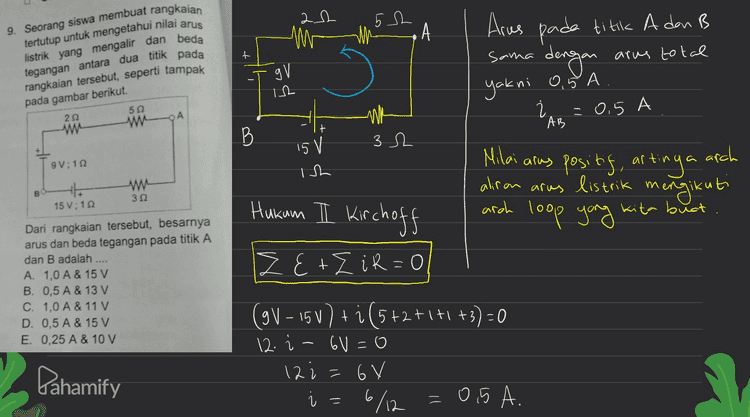 9. Seorang siswa membuat rangkaian
tertutup untuk mengetahui nilai arus
listrik yang mengalir dan beda
tegangan antara dua titik pada
rangkaian tersebut, seperti tampak
pada gambar berikut.
2 Ω
5 Ω
A
9V; 1 Ω
B
15 V; 1 Ω
3 Ω
Dari rangkaian tersebut, besarnya
arus dan beda tegangan pada titik A
dan B adalah ....
A. 1,0 A & 15 V
B. 0,5 A & 13 V
C. 1,0 A & 11 V
D. 0,5 A & 15 V
E. 0,25 A & 10 V
Pahamify
2 Ω
5 Ω
A
+
-
9V
1 Ω
B
- +
15 V
1 Ω
3 Ω
Hukum II Kirchoff
Σ ε + Σ iR = 0
(9V - 15V) + i (5+2+1+1+3) = 0
12. i - 6V = 0
12 i = 6V
i = 6/12 = 0,5 A.
Arus pada titik A dan B
sama dengan arus total
yakni 0,5 A.
i AB = 0,5 A
Nilai arus positif, artinya arah
aliran arus listrik mengikuti
arah loop yang kita buat.